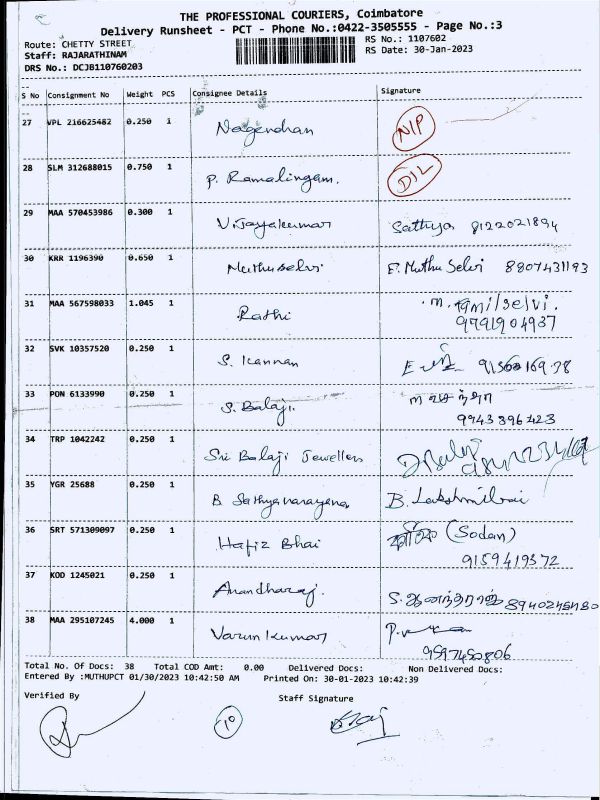 THE PROFESSIONAL COURIERS, Coimbatore
Delivery Runsheet - PCT - Phone No.:0422-3505555 - Page No.:3
Route: CHETTY STREET
RS No.: 1107602
Staff: RAJARATHINAM
RS Date: 30-Jan-2023
DRS No.: DCJB110760203
S No Consignment No Weight PCS Consignee Details Signature
27 VPL 216625482 0.250 1 Nagendhan NIP
28 SLM 312688015 0.750 1 P. Ramalingam. D/L
29 MAA 570453986 0.300 1 Vijayakumar Sathya 8122021894
30 KRR 1196390 0.650 1 Muthuselvi E. Muthu Selvi 8807431193
31 MAA 567598033 1.045 1 Rathi m. tamilselvi.
9791904937
32 SVK 10357520 0.250 1 S. Kannan
33 PON 6133990 0.250 1 S. Balaji.
9943896423
34 TRP 1042242 0.250 1 Sri Balaji Jewellers
35 YGR 25688 0.250 1 B Sathyanarayana B. Lakshmibai
36 SRT 571309097 0.250 1 Hafiz Bhai (Sodan)
9159419372
37 KOD 1245021 0.250 1 Anandharaj. S. ஆனந்தராஜ்
38 MAA 295107245 4.000 1 Varun Kumar
9597450806
Total No. Of Docs: 38 Total COD Amt: 0.00 Delivered Docs: Non Delivered Docs:
Entered By :MUTHUPCT 01/30/2023 10:42:50 AM Printed On: 30-01-2023 10:42:39
Verified By Staff Signature
10